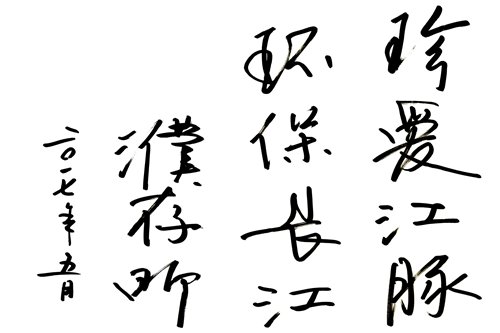 珍爱江豚
环保长江
濮存昕
二〇一七年五月